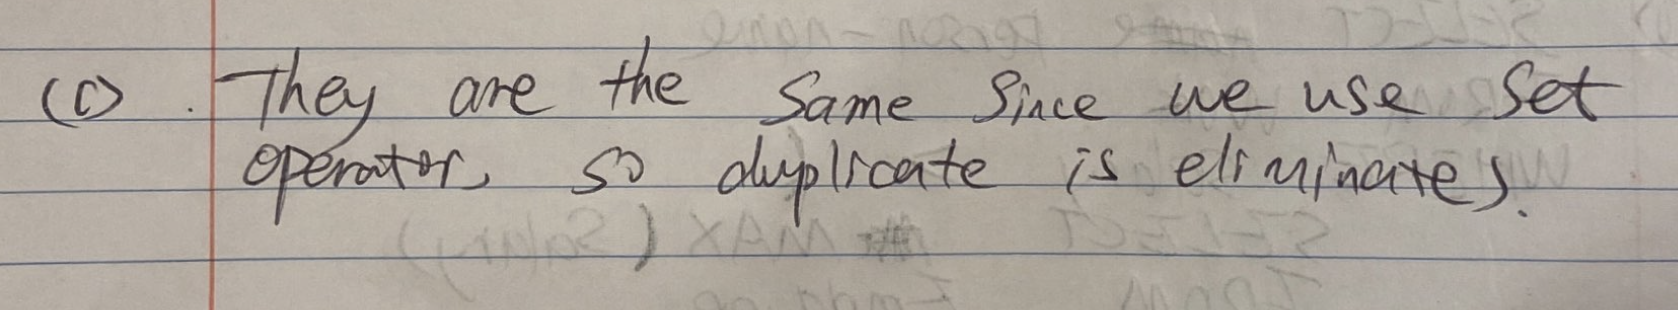 (c). They are the same since we use set
operator, so duplicate is eliminates.